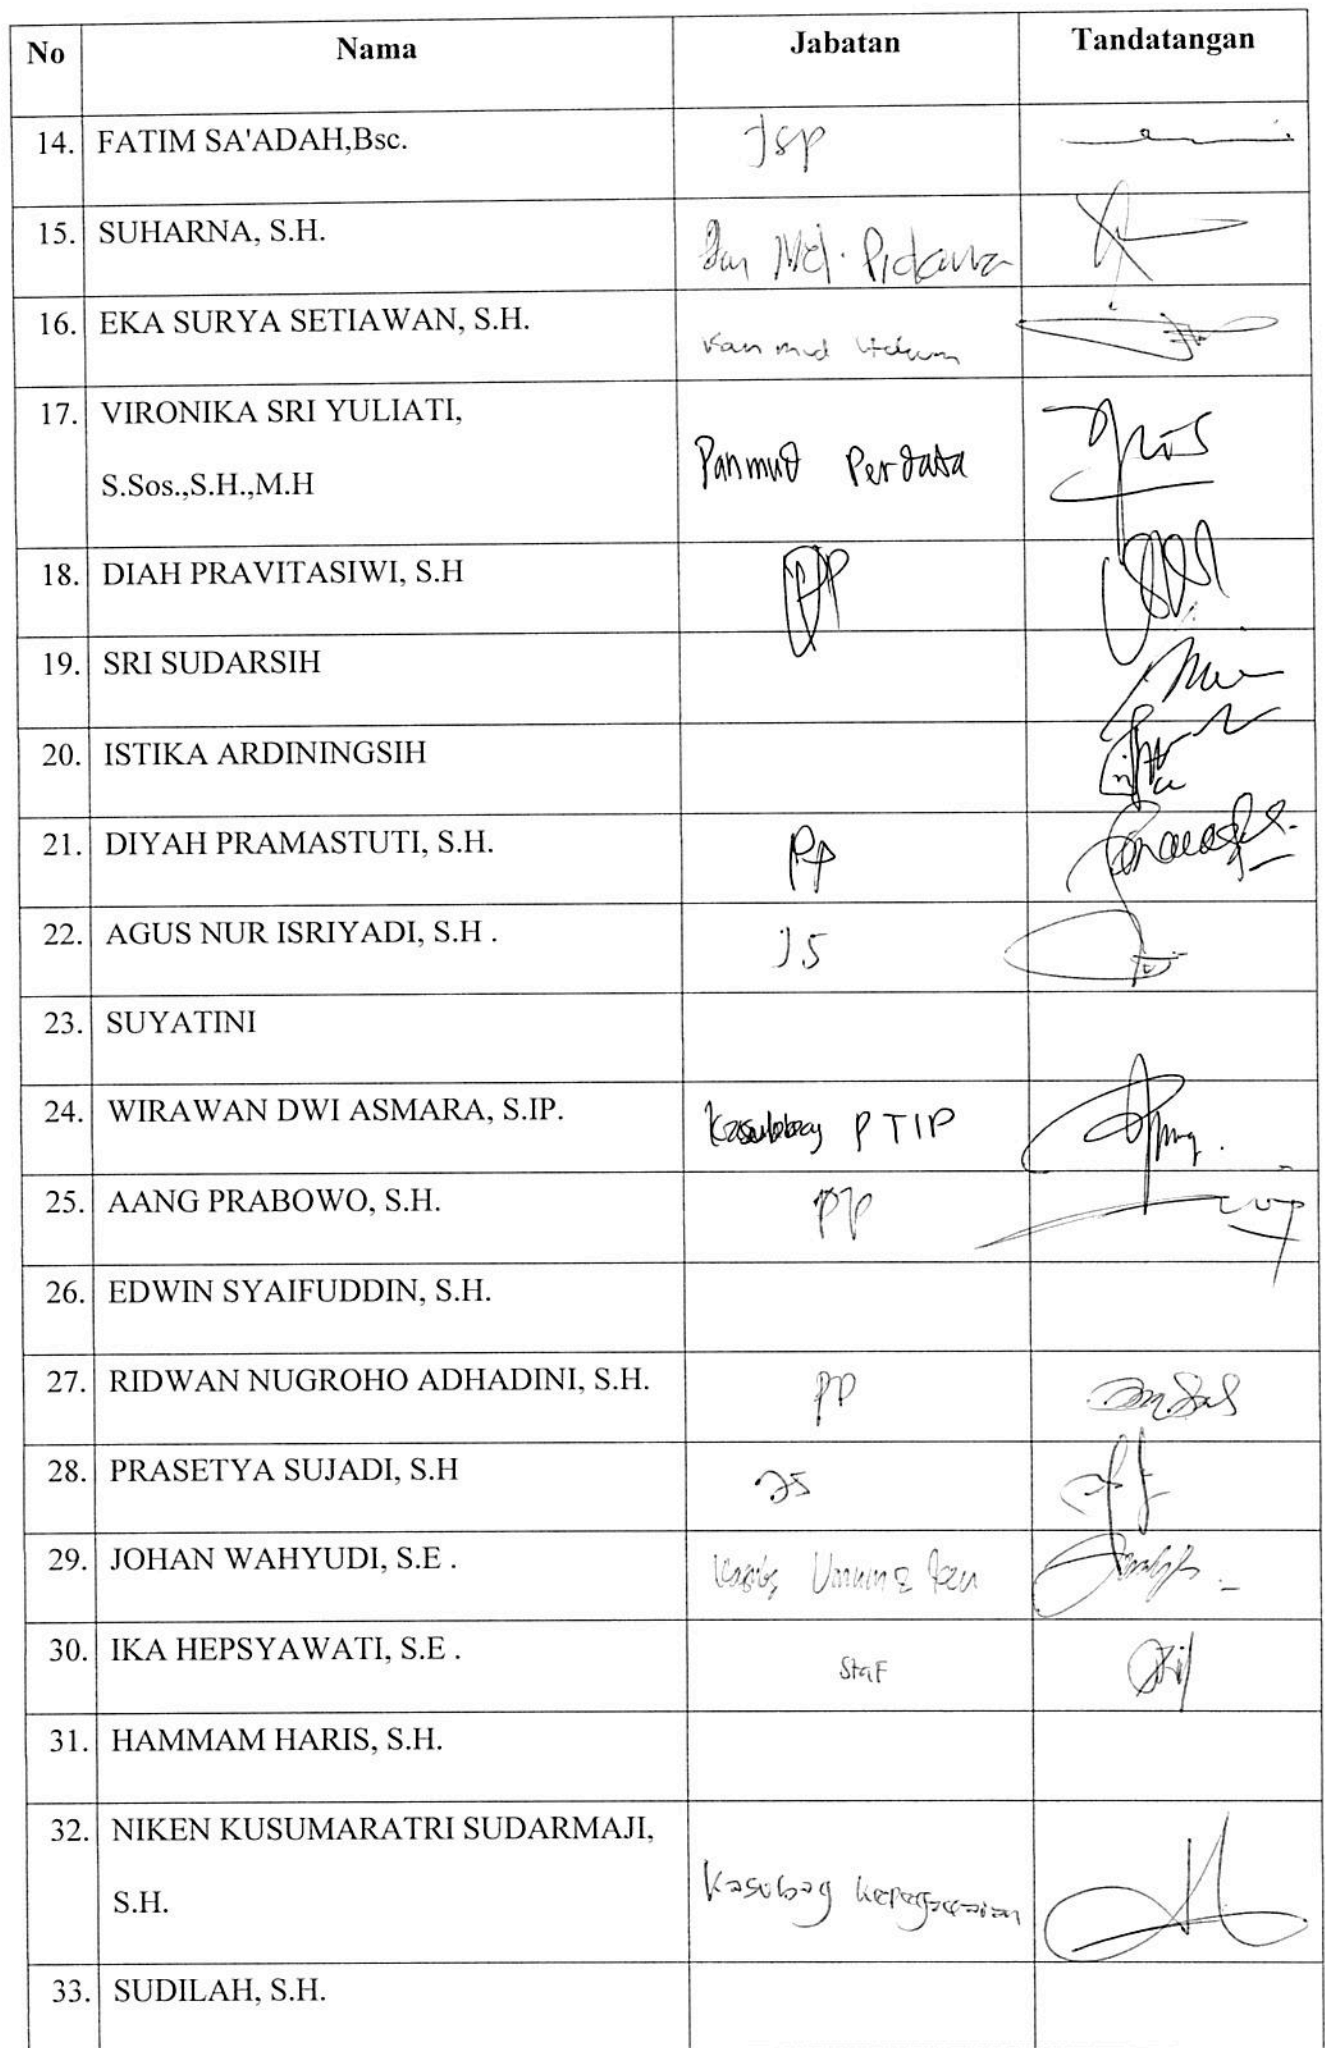 No Nama Jabatan Tandatangan
14. FATIM SA'ADAH,Bsc. JSP
15. SUHARNA, S.H. Pan Md. Pidana
16. EKA SURYA SETIAWAN, S.H.
Pan mud Hukum
17. VIRONIKA SRI YULIATI,
Panmud Perdata
S.Sos.,S.H.,M.H
18. DIAH PRAVITASIWI, S.H PP
19. SRI SUDARSIH
20. ISTIKA ARDININGSIH
21. DIYAH PRAMASTUTI, S.H. PP
22. AGUS NUR ISRIYADI, S.H . JS
23. SUYATINI
24. WIRAWAN DWI ASMARA, S.IP. Kasubbag PTIP
25. AANG PRABOWO, S.H. PP
26. EDWIN SYAIFUDDIN, S.H.
27. RIDWAN NUGROHO ADHADINI, S.H. PP
28. PRASETYA SUJADI, S.H JS
29. JOHAN WAHYUDI, S.E . Umum
30. IKA HEPSYAWATI, S.E . Staf
31. HAMMAM HARIS, S.H.
32. NIKEN KUSUMARATRI SUDARMAJI,
S.H. Kasubag Kepegawaian
33. SUDILAH, S.H.